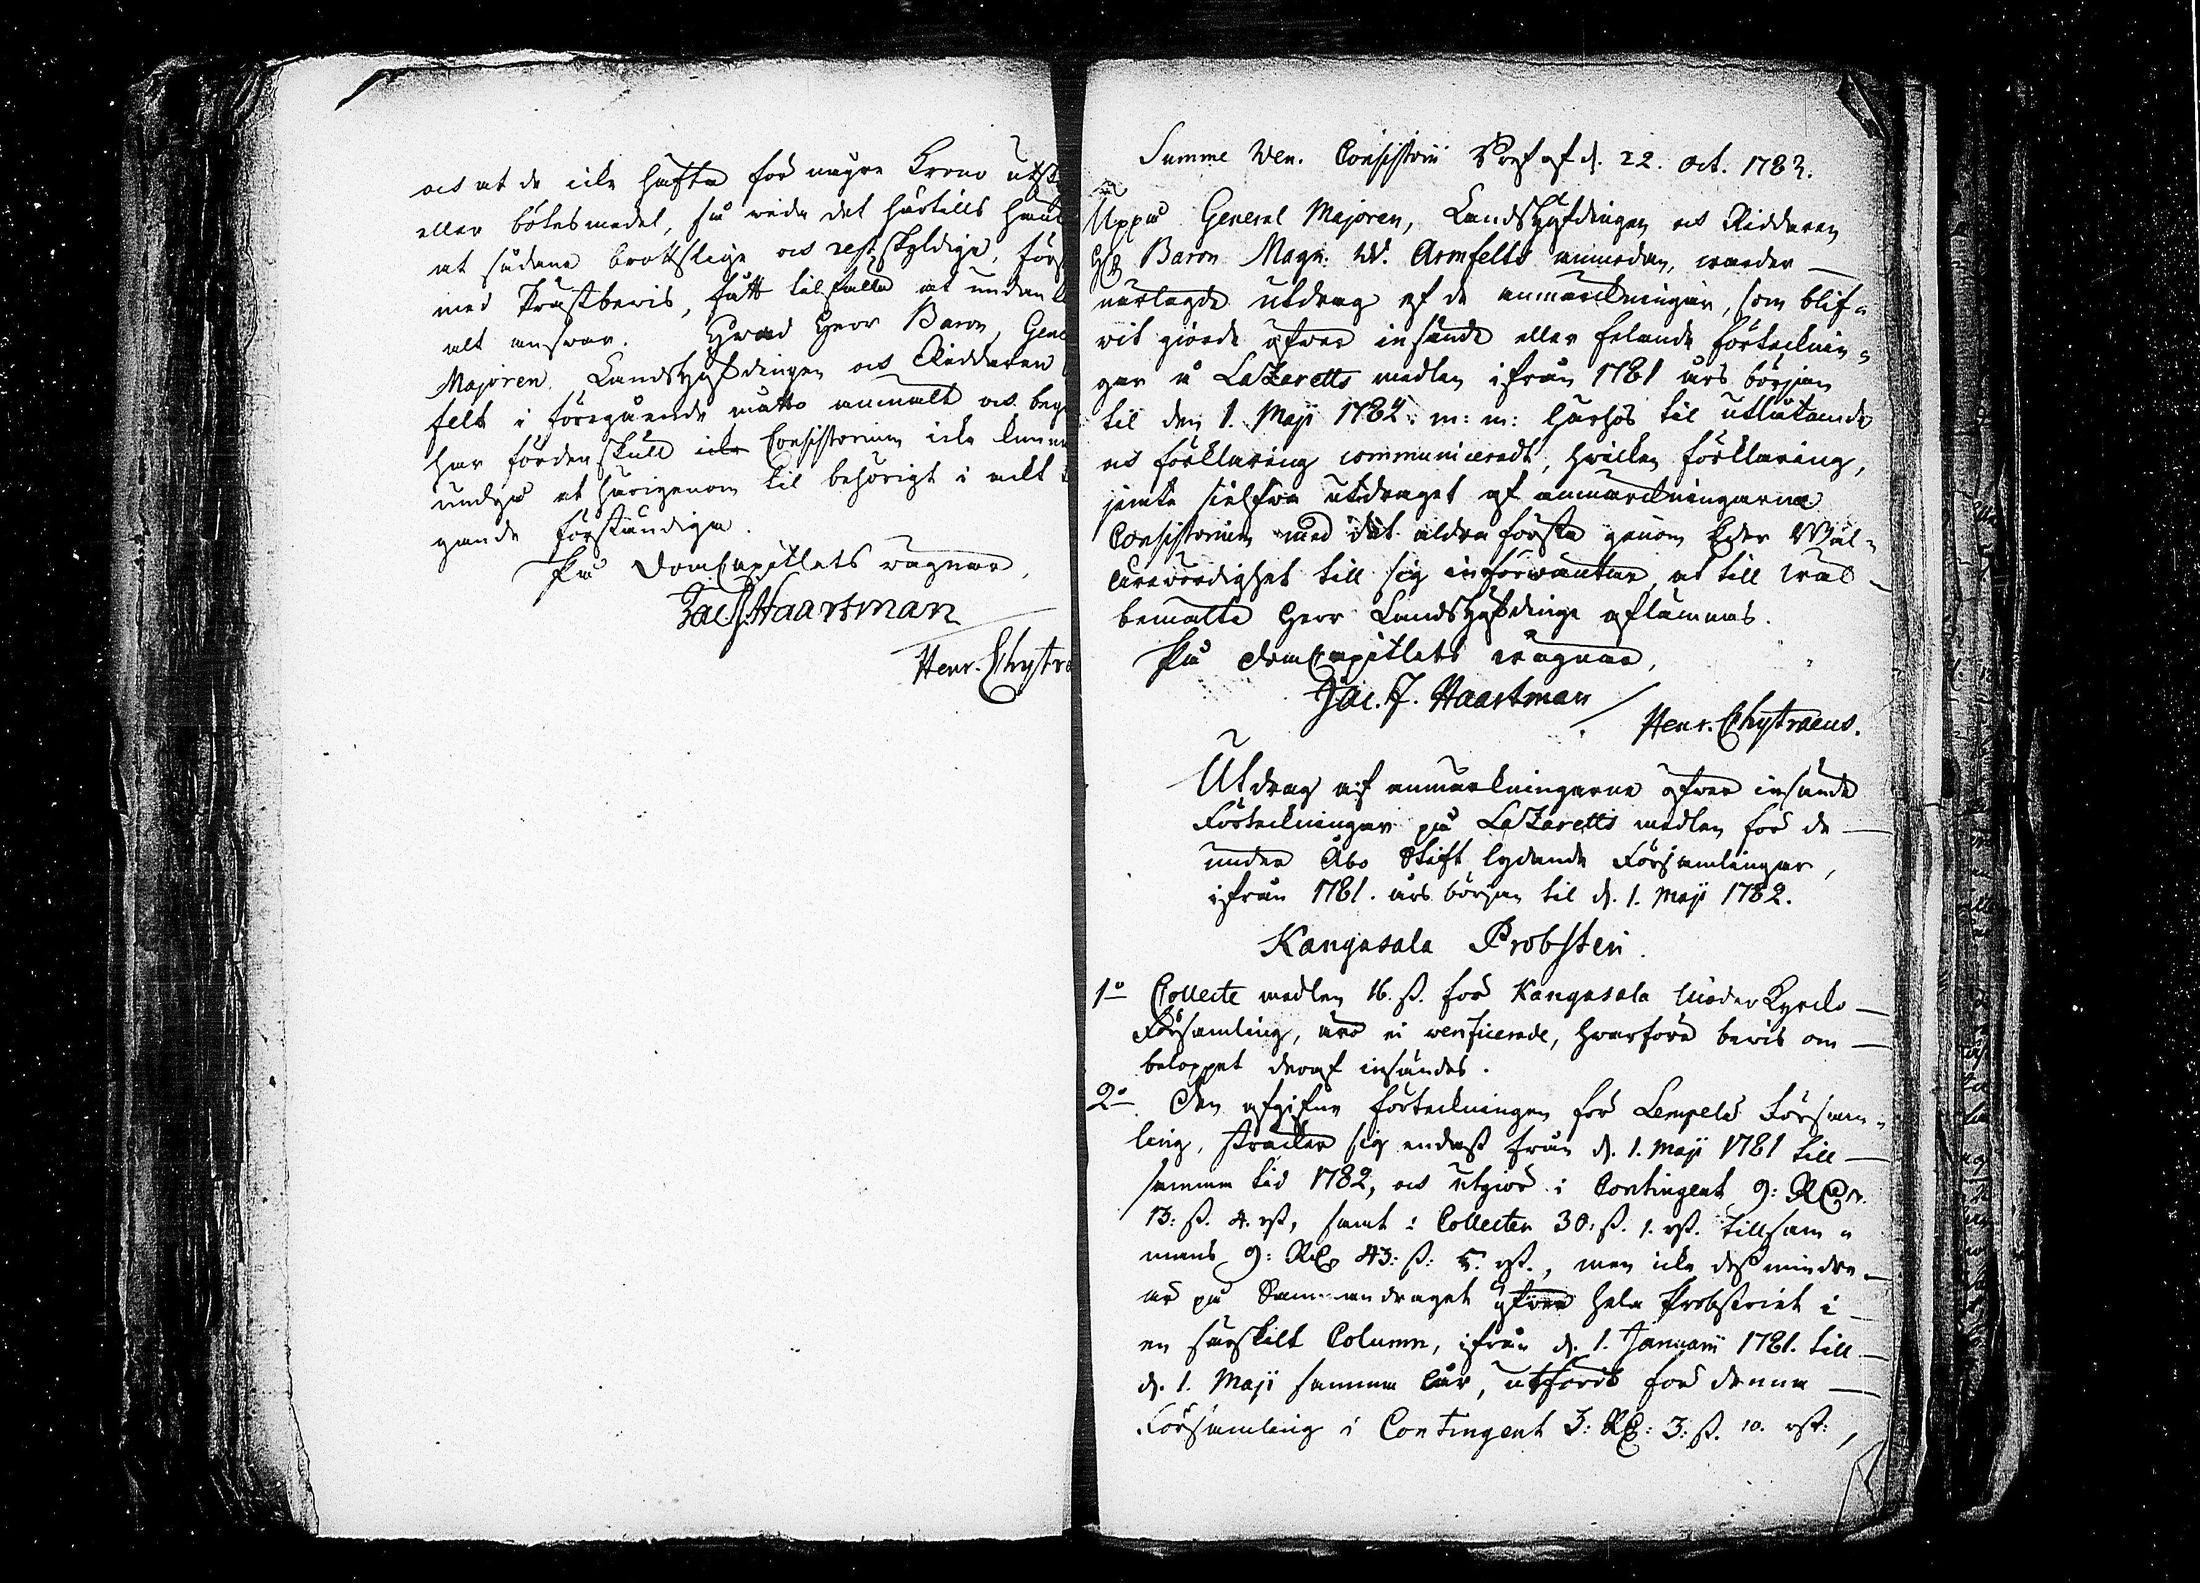 och at de icke häfta för någre Krono utsk
eller bötesmedel, så vida det härtills händ
at sådane brottslige och restskyldige, förs
med Prästbevis, fått tilfälle at undan
alt answar. Hvad Herr Baron, Gene
Majoren, Landshöfdingen och Riddaren
felt i föregående måtto anmält och beg
har fördenskull Consistorium icke kunna
undgå at härigenom til behörigt i akt
gande förständiga.
På DomCapitlets vägnar,
Jac. J. Haartman
Henr. Chytra
Samme Ven. Consistorii Bref af d. 22. Oct. 1783.
Uppå General Majoren, Landshöfdingen och Riddaren
Baron Magn. W. Armfelts anmodan, warder
närlagde utdrag af de anmärkningar, som blif-
vit giorde öfver insände eller felande förtecknin-
gar å LaZaretts medlen ifrån 1781 års början
til den 1. Maji 1782. m: m: härhos til utlåtande
och förklaring communiceradt, hvilken förklaring,
jemte sielfva utdraget af anmärkningarne
Consistorium med det aldra första genom Eder Wäl-
ärevördighet till sig införwäntar, at till wäl-
bemälte Herr Landshöfdinge aflämnas.
På DomCapitlets wägnar,
Jac. J. Haartman
Henr. Chytraeus.
Utdrag af anmärkningarne öfver insände
Förteckningar på LaZaretts medlen för de
under Åbo Stift lydande Församlingar,
ifrån 1781. års början til d. 1. Maji 1782.
Kangasala Probsteri.
1o Collecte medlen 16. ß. för Kangasala ModerKyrko
Församling, äro ei verificerade, hvarföre bevis om
beloppet deraf insändes.
2o Den afgifne förteckningen för Lempelä Försam-
ling, sträcker sig endast från d. 1. Maji 1781 till
samma tid 1782, och utgiör i Contingent 9: Rdr
13: ß. 4. rst, samt i Collecter 30: ß. 1. rst. tillsam-
mans 9: Rdr 43: ß: 5. rst., men icke dess mindre
är på Sammandraget öfver hela Probsteriet i
en särskilt Column, ifrån d. 1. Januarii 1781. till
d. 1. Maji samma år, utfördt för denna
Församling i Contingent 3: Rdr: 3: ß. 10. rst:,